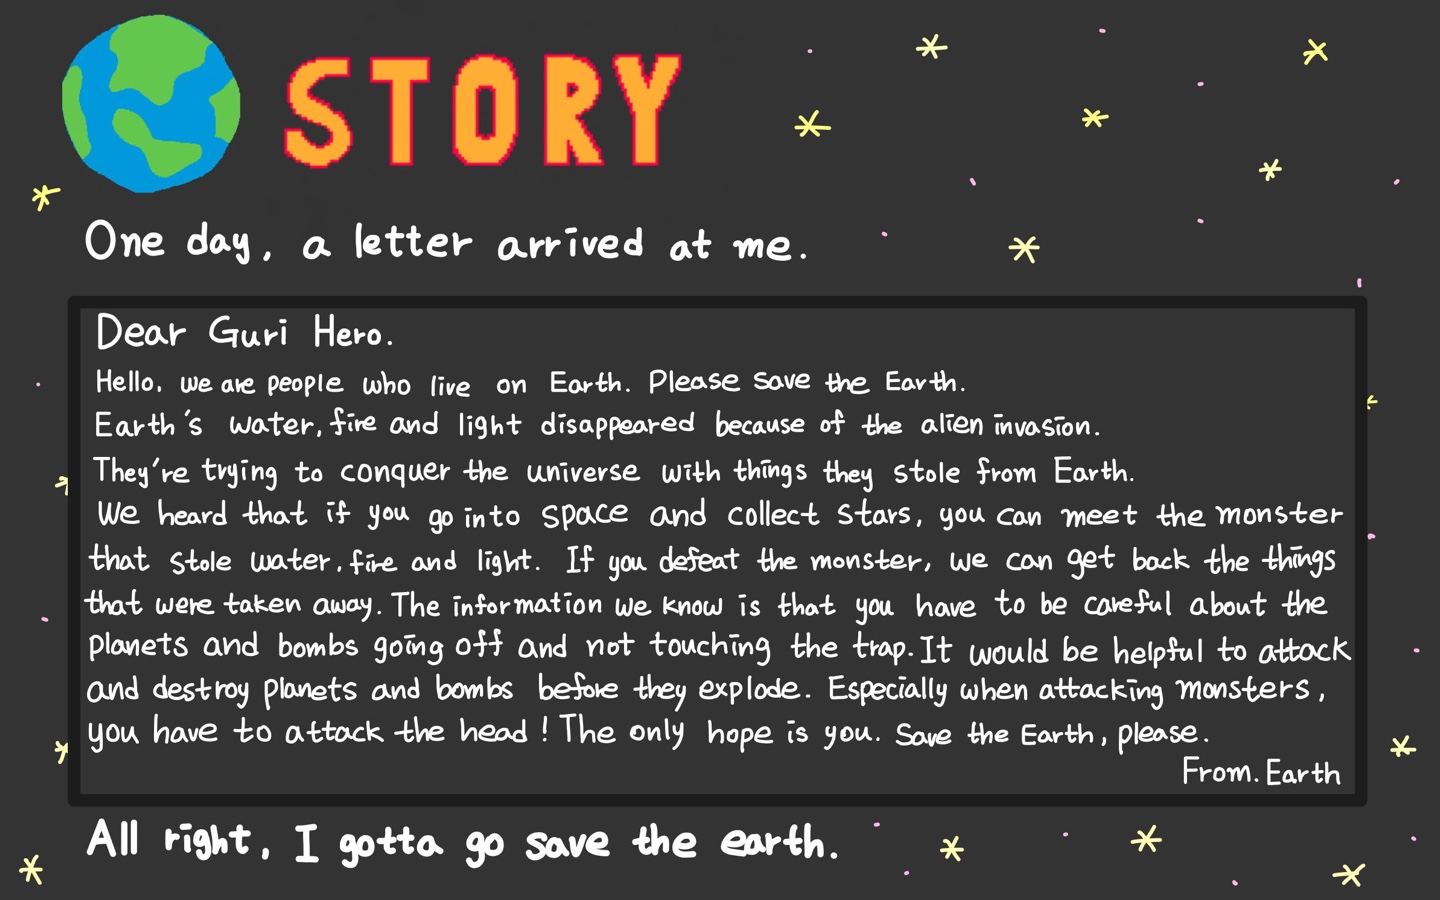 STORY
One day, a letter arrived at me.
Dear Guri Hero.
Hello. we are people who live on Earth. Please save the Earth.
Earth's water, fire and light disappeared because of the alien invasion.
They're trying to conquer the universe with things they stole from Earth.
We heard that if you go into space and collect stars, you can meet the monster
that stole water, fire and light. If you defeat the monster, we can get back the things
that were taken away. The information we know is that you have to be careful about the
planets and bombs going off and not touching the trap. It would be helpful to attack
and destroy planets and bombs before they explode. Especially when attacking monsters,
you have to attack the head! The only hope is you. Save the Earth, please.
From. Earth
All right, I gotta go save the earth.